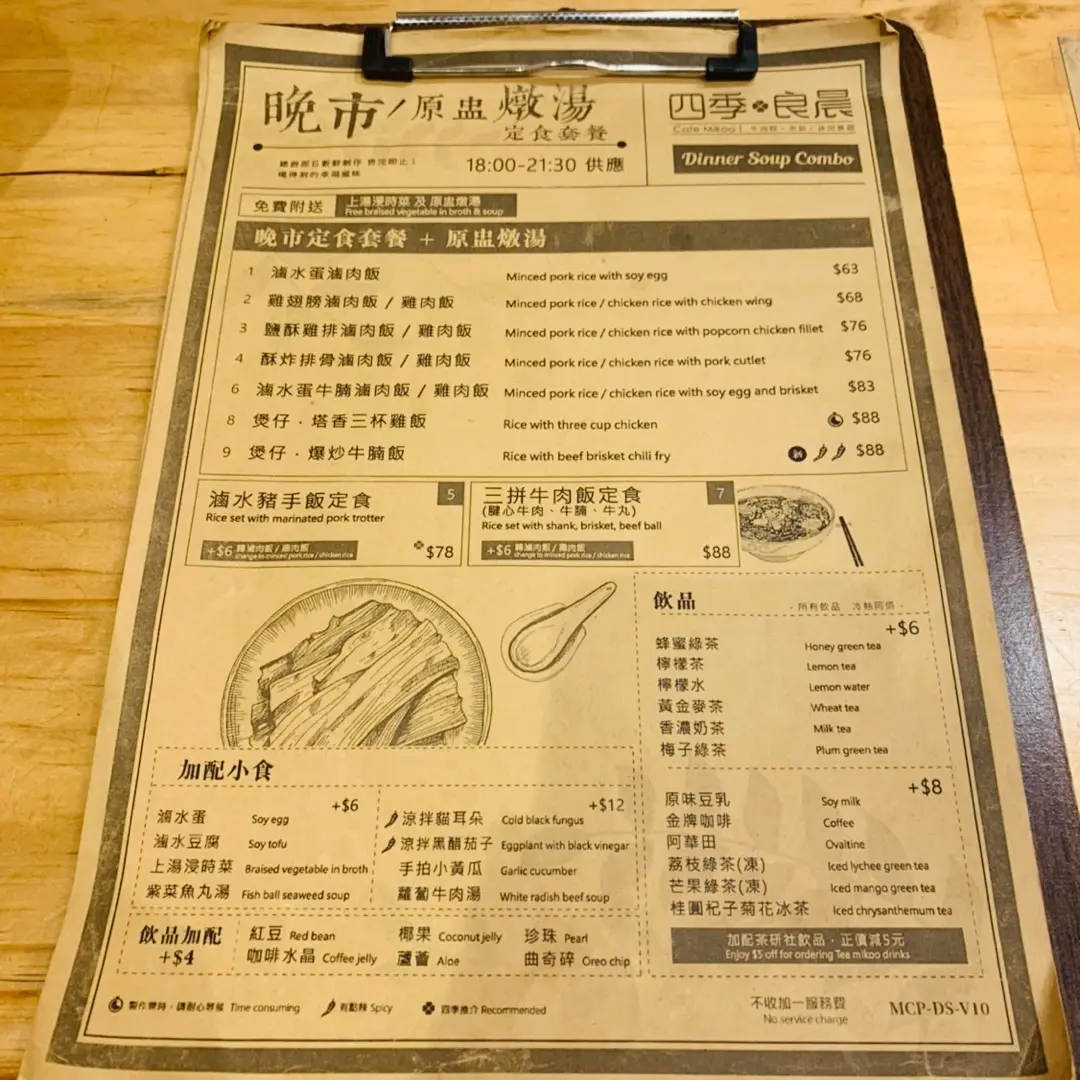 晚市/原盅燉湯
定食套餐
18:00-21:30 供應
四季良晨
Cafe Mikoo
Dinner Soup Combo
免費附送 上湯浸時菜 及 原盅燉湯
Free braised vegetable in broth & soup
晚市定食套餐 + 原盅燉湯
1 滷水蛋滷肉飯 Minced pork rice with soy egg $63
2 雞翅膀滷肉飯 / 雞肉飯 Minced pork rice / chicken rice with chicken wing $68
3 鹽酥雞排滷肉飯 / 雞肉飯 Minced pork rice / chicken rice with popcorn chicken fillet $76
4 酥炸排骨滷肉飯 / 雞肉飯 Minced pork rice / chicken rice with pork cutlet $76
6 滷水蛋牛腩滷肉飯 / 雞肉飯 Minced pork rice / chicken rice with soy egg and brisket $83
8 煲仔．塔香三杯雞飯 Rice with three cup chicken $88
9 煲仔．爆炒牛腩飯 Rice with beef brisket chili fry $88
滷水豬手飯定食 5
Rice set with marinated pork trotter
+$6 轉滷肉飯/雞肉飯
change to minced pork rice / chicken rice
$78
三拼牛肉飯定食 7
(腱心牛肉、牛腩、牛丸)
Rice set with shank, brisket, beef ball
+$6 轉滷肉飯/雞肉飯
change to minced pork rice / chicken rice
$88
飲品 - 所有飲品 冷熱同價 -
+$6
蜂蜜綠茶 Honey green tea
檸檬茶 Lemon tea
檸檬水 Lemon water
黃金麥茶 Wheat tea
香濃奶茶 Milk tea
梅子綠茶 Plum green tea
+$8
原味豆乳 Soy milk
金牌咖啡 Coffee
阿華田 Ovaltine
荔枝綠茶(凍) Iced lychee green tea
芒果綠茶(凍) Iced mango green tea
桂圓杞子菊花冰茶 Iced chrysanthemum tea
加配茶研社飲品，正價減5元
Enjoy $5 off for ordering Tea mikoo drinks
加配小食
+$6
滷水蛋 Soy egg
滷水豆腐 Soy tofu
上湯浸時菜 Braised vegetable in broth
紫菜魚丸湯 Fish ball seaweed soup
+$12
涼拌貓耳朵 Cold black fungus
涼拌黑醋茄子 Eggplant with black vinegar
手拍小黃瓜 Garlic cucumber
蘿蔔牛肉湯 White radish beef soup
飲品加配
+$4
紅豆 Red bean 椰果 Coconut jelly 珍珠 Pearl
咖啡水晶 Coffee jelly 蘆薈 Aloe 曲奇碎 Oreo chip
製作需時，請耐心等候 Time consuming 有點辣 Spicy 四季推介 Recommended
不收加一服務費
No service charge
MCP-DS-V10